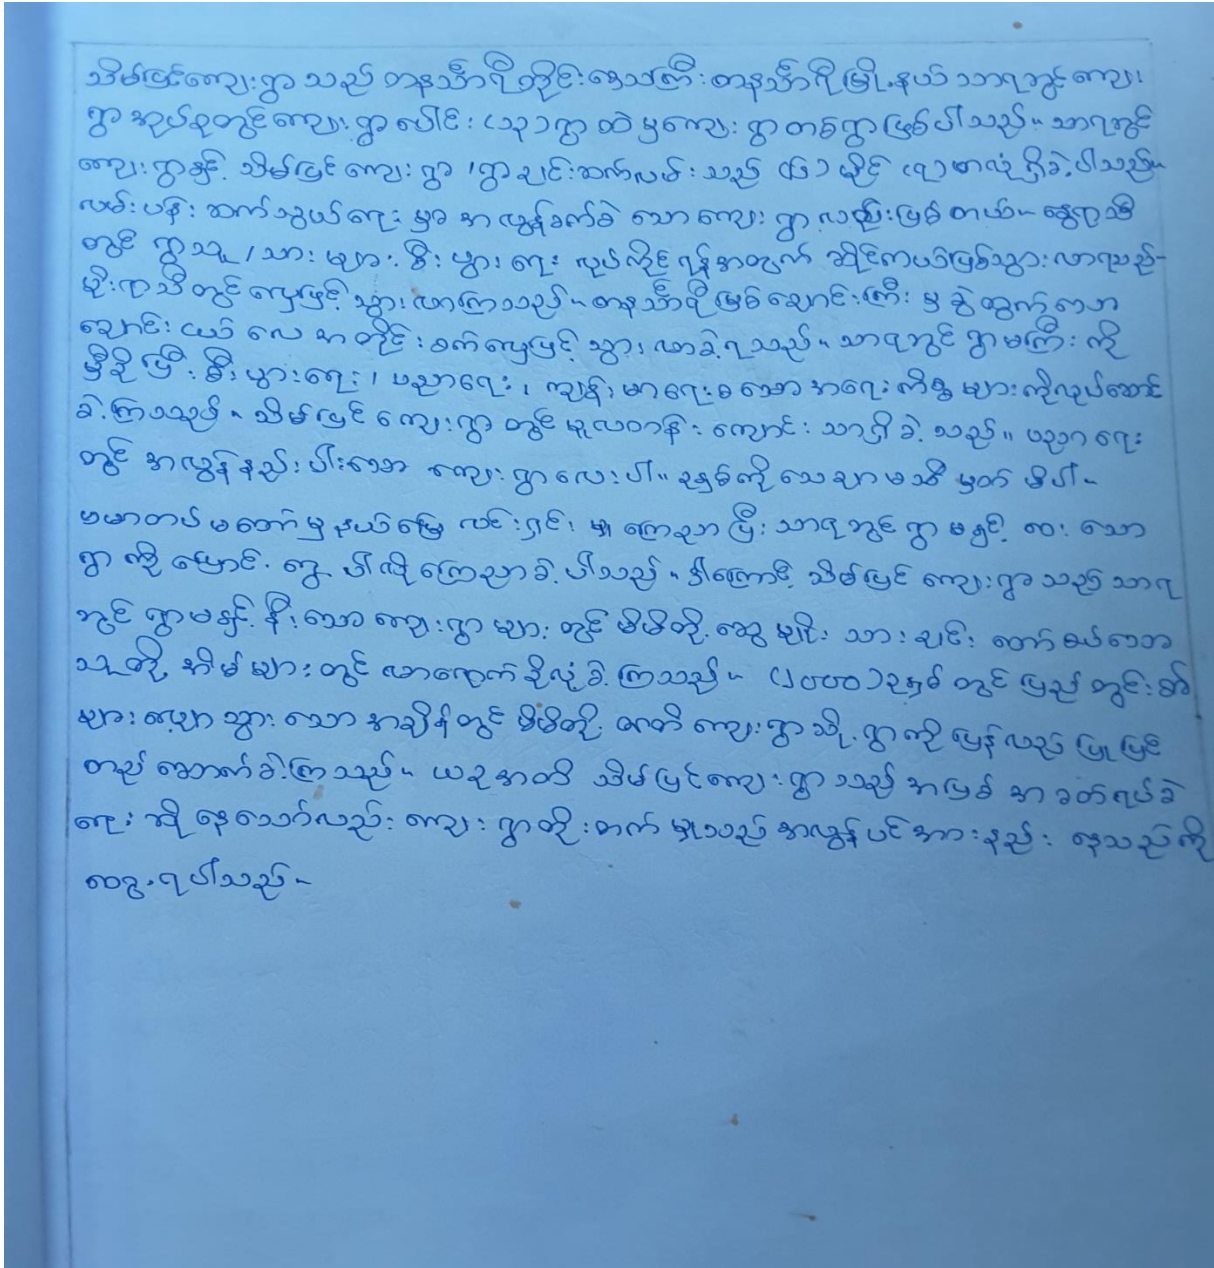 သိမ်ပြင်ကျေးရွာ သည် တနင်္သာရီတိုင်းဒေသကြီး တနင်္သာရီမြို့နယ် သာရဘွင် ကျေး
ရွာအုပ်စုတွင် ကျေးရွာပေါင်း (၁၃) ရွာထဲမှ ကျေးရွာတစ်ရွာ ဖြစ်ပါသည်။ သာရဘွင်
ကျေးရွာနှင့် သိမ်ပြင် ကျေးရွာ ၊ ရွာချင်းဆက်လမ်း သည် (၆) မိုင် (၃) ဖာလုံ ရှိခဲ့ပါသည်။
လမ်းပန်း ဆက်သွယ်ရေး မှာ အလွန်ခက်ခဲ သော ကျေးရွာ လည်းဖြစ် တယ်။ နွေရာသီ
တွင် ရွာသူ ၊ သား များ စီးပွား ရေး လုပ်ကိုင် ရန်အတွက် ဆိုင်ကယ်ဖြင့်သွားလာရသည်-
မိုးရာသီတွင် လှေဖြင့် သွားလာကြသည်။ တနင်္သာရီ မြစ်ချောင်းကြီး မှ ခွဲထွက် လာ
ချောင်း ငယ် လေ အတိုင်း စက်လှေဖြင့် သွားလာခဲ့ရသည်။ သာရဘွင် ရွာမကြီး ကို
မှီခို ပြီး စီးပွားရေး ၊ ပညာရေး ၊ ကျန်းမာရေး စသော အရေးကိစ္စ များကိုလုပ်ဆောင်
ခဲ့ကြသည်။ သိမ်ပြင် ကျေးရွာ တွင် မူလတန်း ကျောင်း သာရှိခဲ့ သည်။ ပညာရေး
တွင် အလွန်နည်းပါးသော ကျေးရွာလေးပါ။ ခုနှစ်ကို သေချာ မသိ မှတ် မိပါ။
ဗမာတပ် မတော်မှ နယ်မြေ လင်းရှင်း မှု ကြေညာ ပြီး သာရဘွင် ရွာ မနှင့် ဝေး သော
ရွာ ကို ပြောင်း ရွှေ့ ပါလို့ ကြေညာ ခဲ့ ပါသည်။ ဒါ့ကြောင့် သိမ်ပြင် ကျေးရွာ သည် သာရ
ဘွင် ရွာမနှင့် နီးသော ကျေးရွာ များ တွင် မိမိတို့ ဆွေမျိုး သားချင်း တော်စပ်သော
သူတို့ အိမ်များ တွင် လာရောက် ခိုလှုံ ခဲ့ ကြသည်။ (၂၀၀၀) ခုနှစ် တွင် ပြည်တွင်းစစ်
များ လျော့သွား သော အချိန်တွင် မိမိတို့ ဇာတိ ကျေးရွာသို့ ရွာကို ပြန်လည် ပြုပြင်
တည် ဆောက်ခဲ့ကြသည်။ ယခုအထိ သိမ်ပြင်ကျေးရွာ သည် အပြစ် အခတ်ရပ်ခဲ
ရေး ဆို နေသော်လည်း ကျေးရွာတိုးတက် မှုသည် အလွန်ပင် အားနည်း နေသည်ကို
တွေ့ရပါသည်။